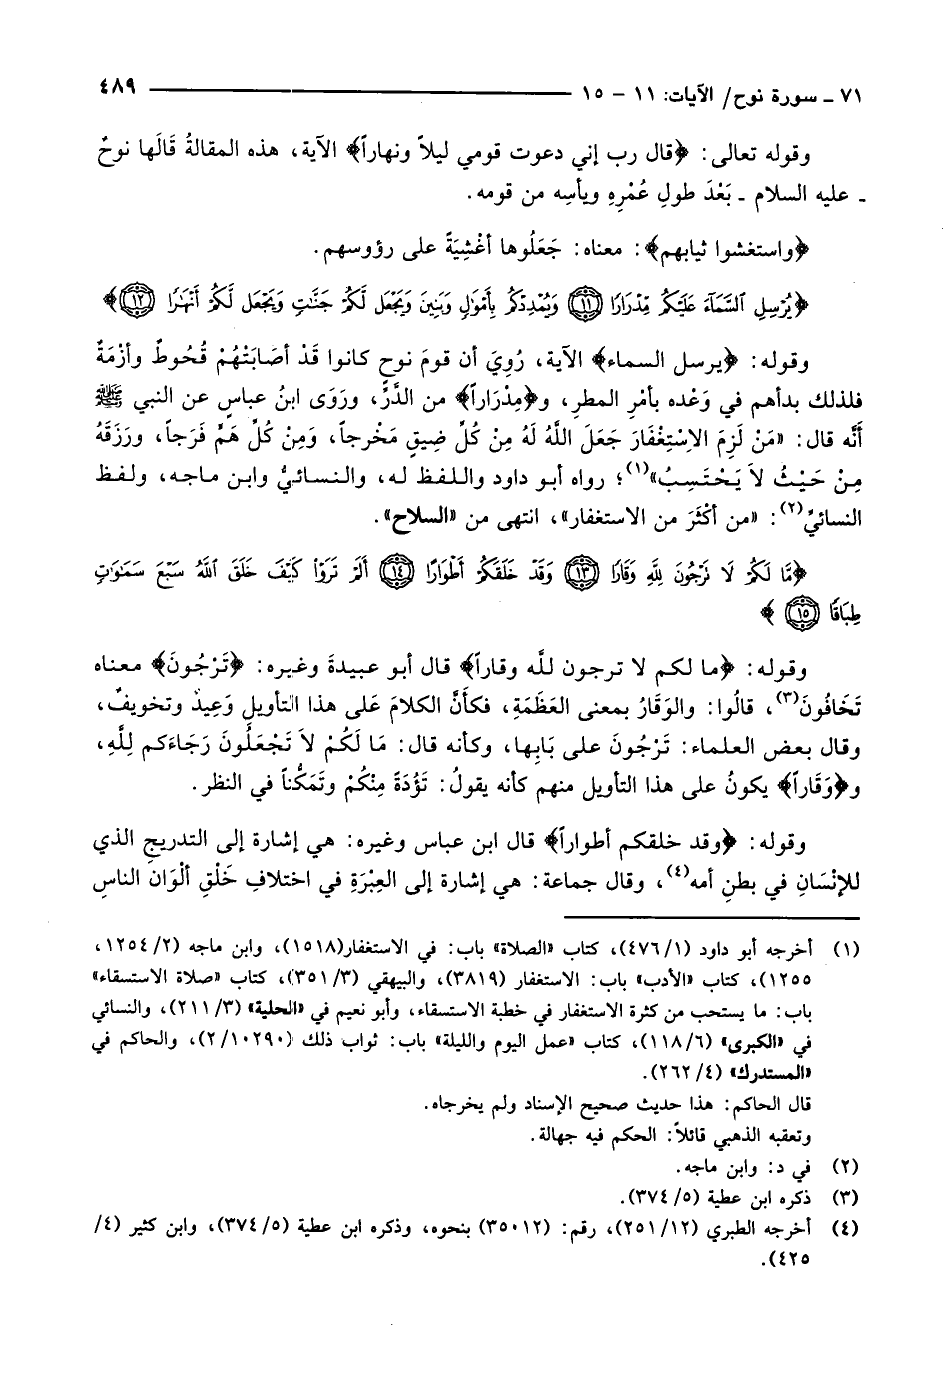 ٧١ - سورة نوح/ الآيات: ١١ - ١٥ ٤٨٩
وقوله تعالى: ﴿قال رب إني دعوت قومي ليلاً ونهاراً﴾ الآية، هذه المقالةُ قَالَها نوحٌ
ـ عليه السلام ـ بَعْدَ طولِ عُمْرِهِ ويأسِه من قومه.
﴿واستغشوا ثيابهم﴾: معناه: جَعَلُوها أغْشِيَةً على رؤوسهم.
﴿يُرْسِلِ ٱلسَّمَآءَ عَلَيْكُم مِّدْرَارًا ﴿١١﴾ وَيُمْدِدْكُم بِأَمْوَٰلٍ وَبَنِينَ وَيَجْعَل لَّكُمْ جَنَّٰتٍ وَيَجْعَل لَّكُمْ أَنْهَٰرًا ﴿١٢﴾﴾
وقوله: ﴿يرسل السماء﴾ الآية، رُوِيَ أن قومَ نوحٍ كانوا قَدْ أصَابَتْهُمْ قُحُوطٌ وأزْمَةٌ
فلذلك بدأهم في وَعْده بأمْرِ المطرِ، و﴿مِدْرَاراً﴾ من الدَّرِّ، ورَوَى ابنُ عباسٍ عن النبي ﷺ
أنَّه قال: «مَنْ لَزِمَ الاِسْتِغْفَارَ جَعَلَ اللَّهُ لَهُ مِنْ كُلِّ ضِيقٍ مَخْرجاً، وَمِنْ كُلِّ هَمٍّ فَرَجاً، ورَزَقَهُ
مِنْ حَيْثُ لاَ يَحْتَسِبُ»(١)؛ رواه أبو داود واللفظ له، والنسائيُّ وابن ماجه، ولفظ
النسائيِّ(٢): «من أكْثَرَ من الاستغفار»، انتهى من «السلاح».
﴿مَّا لَكُمْ لَا تَرْجُونَ لِلَّهِ وَقَارًا ﴿١٣﴾ وَقَدْ خَلَقَكُمْ أَطْوَارًا ﴿١٤﴾ أَلَمْ تَرَوْا۟ كَيْفَ خَلَقَ ٱللَّهُ سَبْعَ سَمَٰوَٰتٍ
طِبَاقًا ﴿١٥﴾﴾
وقوله: ﴿ما لكم لا ترجون للَّه وقاراً﴾ قال أبو عبيدةَ وغيره: ﴿تَرْجُونَ﴾ معناه
تَخَافُونَ(٣)، قالُوا: والوَقَارُ بمعنى العَظَمَةِ، فكأنَّ الكلامَ عَلى هذا التأويلِ وَعِيدٌ وتخويفٌ،
وقال بعض العلماء: تَرْجُونَ على بَابِها، وكأنه قال: مَا لَكُمْ لاَ تَجْعَلُونَ رَجَاءَكم لِلَّهِ،
و﴿وَقَاراً﴾ يكونُ على هذا التأويل منهم كأنه يقولُ: تَؤُدَةً مِنْكُمْ وتَمَكُّناً في النظر.
وقوله: ﴿وقد خلقكم أطواراً﴾ قال ابن عباس وغيره: هي إشارة إلى التدريجِ الذي
للإنْسَانِ في بطنِ أمه(٤)، وقال جماعة: هي إشارة إلى العِبْرَةِ في اختلافِ خَلْقِ ألْوَانِ الناسِ
(١) أخرجه أبو داود (٤٧٦/١)، كتاب «الصلاة» باب: في الاستغفار(١٥١٨)، وابن ماجه (١٢٥٤/٢،
١٢٥٥)، كتاب «الأدب» باب: الاستغفار (٣٨١٩)، والبيهقي (٣٥١/٣)، كتاب «صلاة الاستسقاء»
باب: ما يستحب من كثرة الاستغفار في خطبة الاستسقاء، وأبو نعيم في «الحلية» (٢١١/٣)، والنسائي
في «الكبرى» (١١٨/٦)، كتاب «عمل اليوم والليلة» باب: ثواب ذلك (٢/١٠٢٩٠)، والحاكم في
«المستدرك» (٢٦٢/٤).
قال الحاكم: هذا حديث صحيح الإسناد ولم يخرجاه.
وتعقبه الذهبي قائلاً: الحكم فيه جهالة.
(٢) في د: وابن ماجه.
(٣) ذكره ابن عطية (٣٧٤/٥).
(٤) أخرجه الطبري (٢٥١/١٢)، رقم: (٣٥٠١٢) بنحوه، وذكره ابن عطية (٣٧٤/٥)، وابن كثير (٤/
٤٢٥).